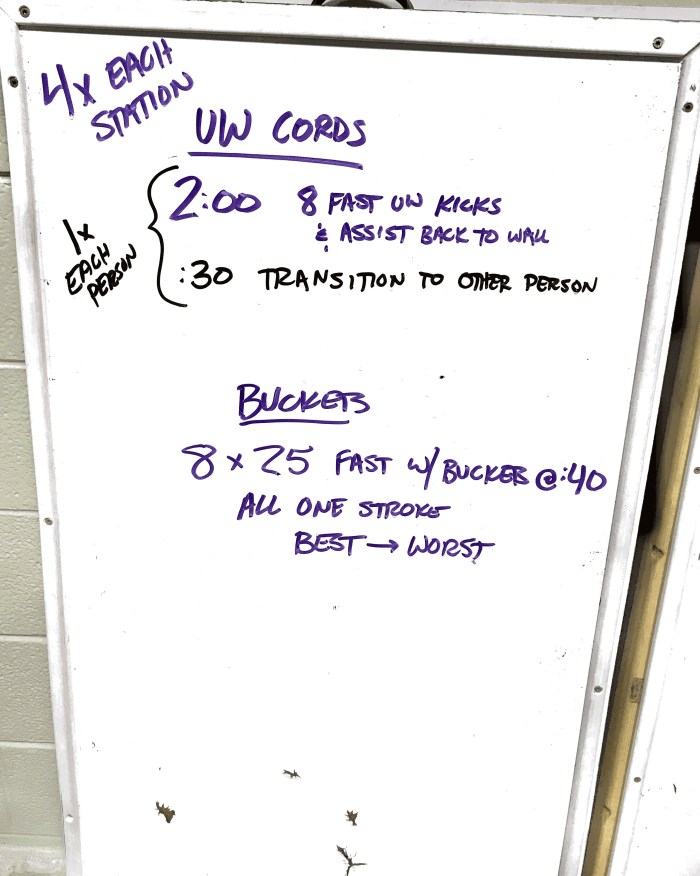 4x EACH
STATION
UW CORDS
1x
EACH
PERSON
2:00 8 FAST UW KICKS
& ASSIST BACK TO WALL
:30 TRANSITION TO OTHER PERSON
BUCKETS
8 x 25 FAST W/ BUCKETS @ :40
ALL ONE STROKE
BEST → WORST